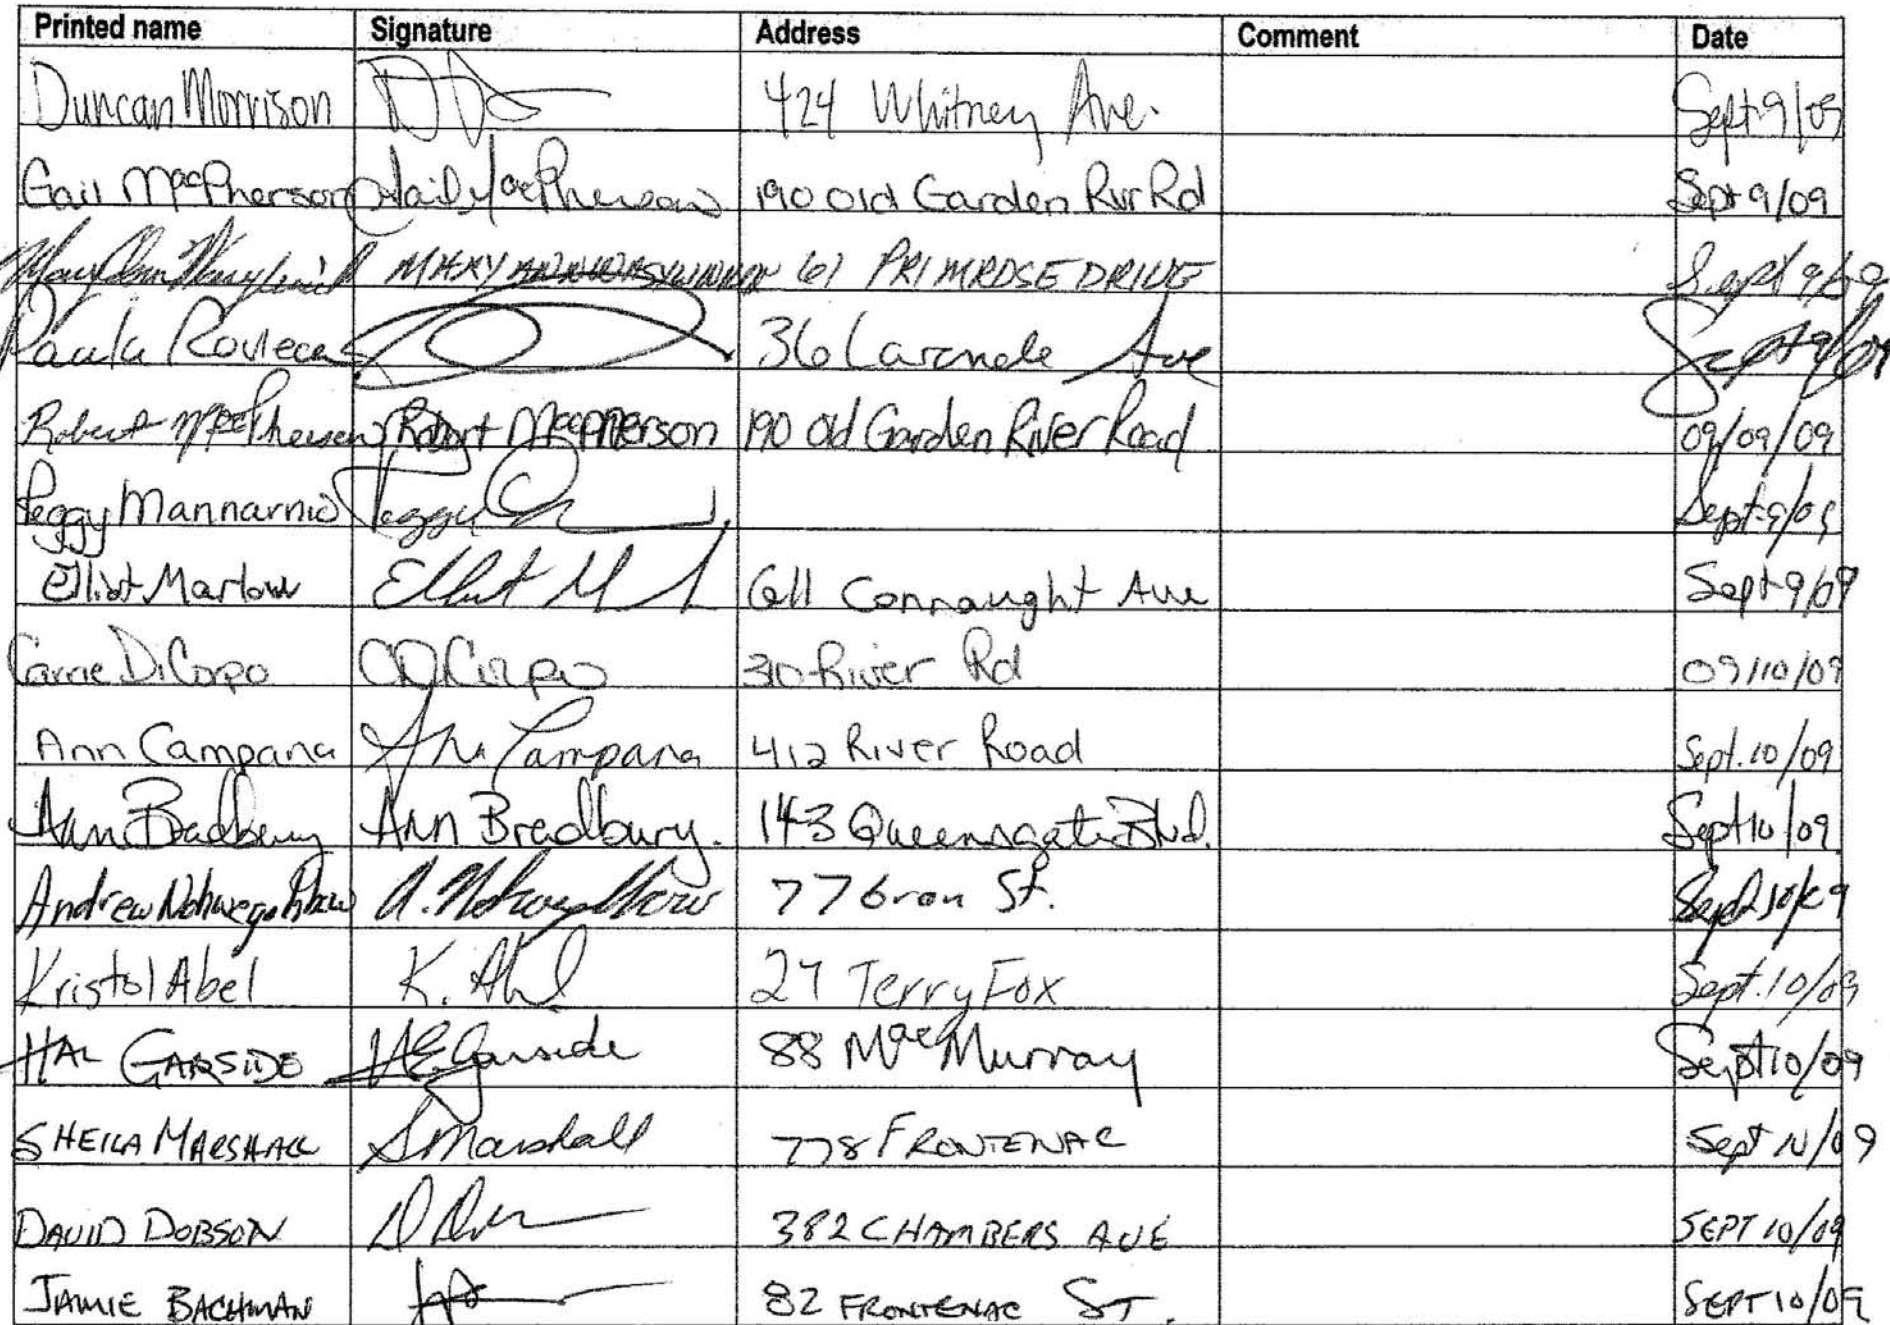 Printed name Signature Address Comment Date
Duncan Morrison 424 Whitney Ave. Sept 9/09
Gail MacPherson Gail MacPherson 190 Old Garden Rvr Rd Sept 9/09
Mary Ann MARY ANN 61 PRIMROSE DRIVE Sept 9/09
Paula 36 Ave Sept 9/09
Robert MacPherson Robert MacPherson 190 Old Garden River Road 09/09/09
Peggy Mannarnio Peggy Sept 9/09
Elliot Marlow Elliot M 611 Connaught Ave Sept 9/09
Carrie DiCorpo CDiCorpo 310 River Rd 09/10/09
Ann Campana Ann Campana 412 River Road Sept. 10/09
Ann Bradbury Ann Bradbury. 143 Queensgate Blvd. Sept 10/09
Andrew A. St. Sept 10/09
Kristol Abel K. Abel 27 Terry Fox Sept. 10/09
HAL GARSIDE HEGarside 88 MacMurray Sept 10/09
SHEILA MARSHALL SMarshall 778 FRONTENAC Sept 10/09
DAVID DOBSON 382 CHAMBERS AVE SEPT 10/09
JAMIE BACHMAN 82 FRONTENAC ST. SEPT 10/09